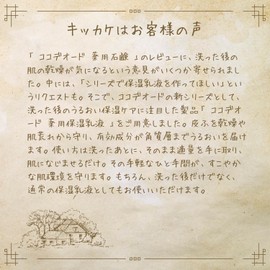 キッカケはお客様の声
「 ココデオード 薬用石鹸 」のレビューに、洗った後の
肌の乾燥が気になるという意見がいくつか寄せられまし
た。中には、「シリーズで保湿乳液を作ってほしい」とい
うリクエストも。そこで、ココデオードの新シリーズとして、
洗った後のうるおい保湿ケアに注目した製品「 ココデオ
ード 薬用保湿乳液 」をご用意しました。皮ふを乾燥や
肌荒れから守り、有効成分が角質層までうるおいを届け
ます。使い方は洗ったあとに、そのまま適量を手に取り、
肌になじませるだけ。その手軽なひと手間が、すこやか
な肌環境を守ります。もちろん、洗った後だけでなく、
通常の保湿乳液としてもお使いいただけます。